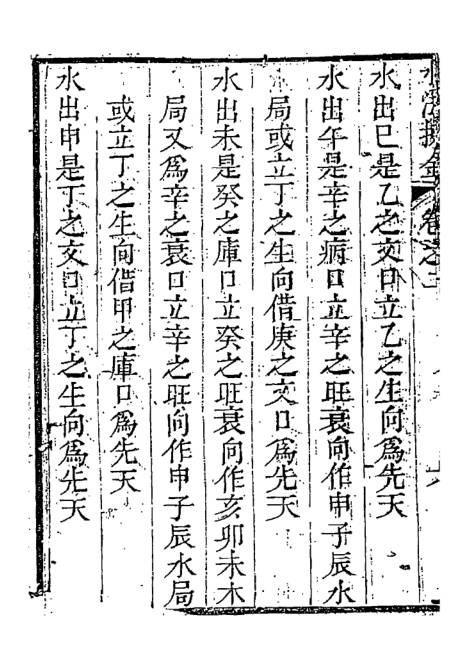 水出巳是乙之交口立乙之生向爲先天
水出午是辛之病口立辛之旺衰向作申子辰水
局或立丁之生向借庚之交口爲先天
水出未是癸之庫口立癸之旺衰向作亥卯未木
局又爲辛之衰口立辛之旺向作申子辰水局
或立丁之生向借甲之庫口爲先天
水出申是丁之交口立丁之生向爲先天